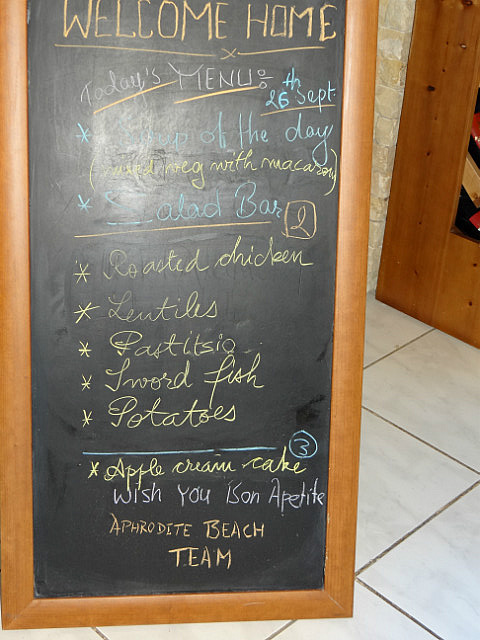 WELCOME HOME
Today's MENU:
26th Sept.
* Soup of the day
(mixed veg with macaroni)
* Salad Bar 2
* Roasted chicken
* Lentiles
* Pastitsio
* Sword fish
* Potatoes
3
* Apple cream cake
Wish You Bon Apetite
APHRODITE BEACH
TEAM